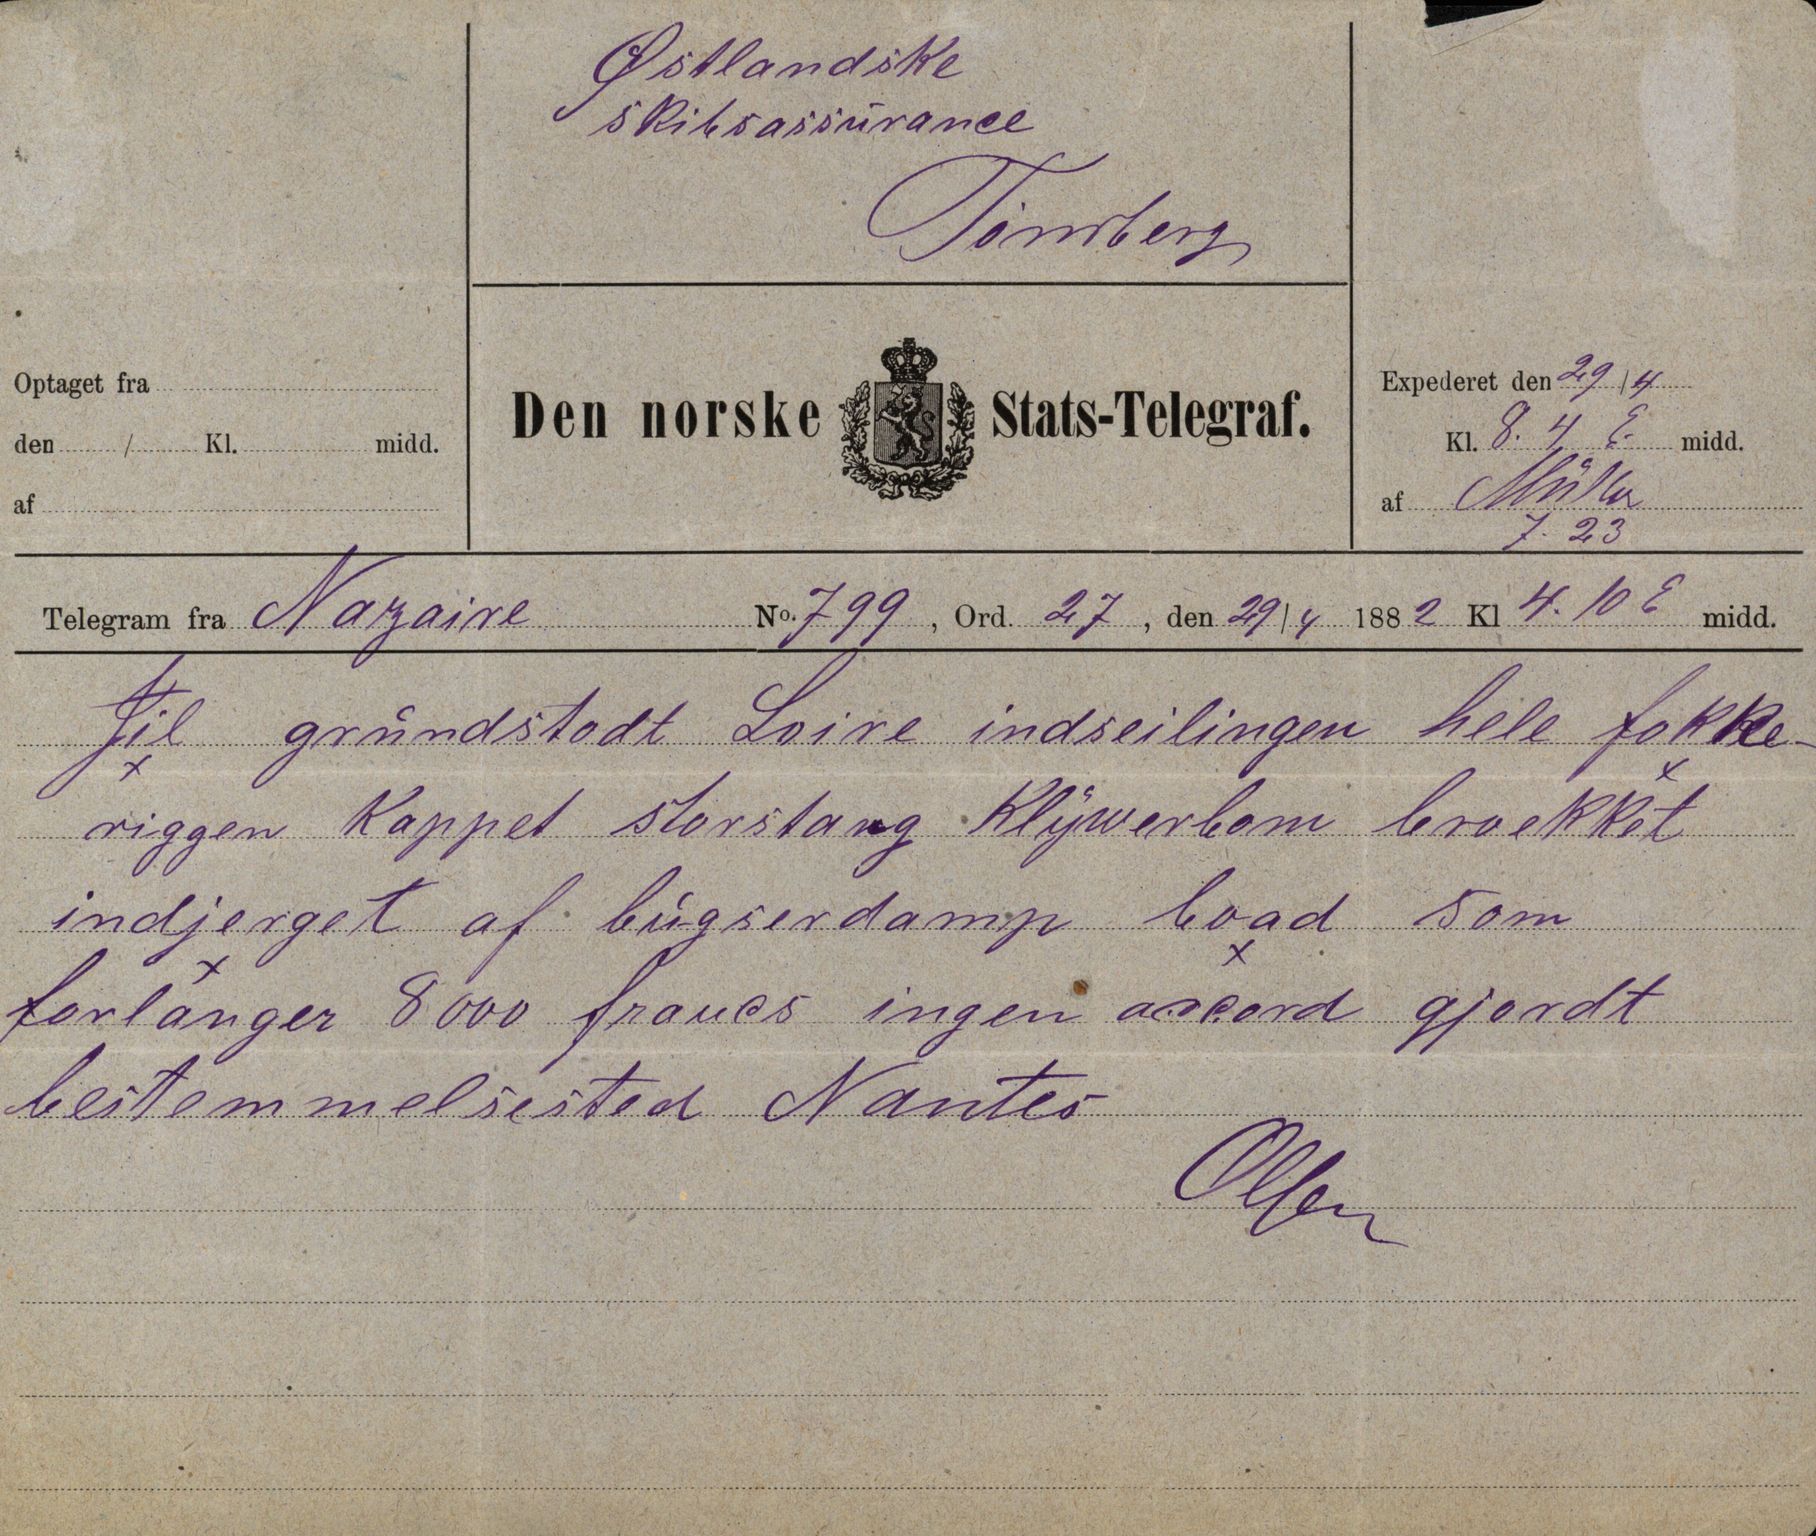 Østlandske
skibsassurance
Tönsberg
Optaget fra
den / Kl. midd.
af
Den norske Stats-Telegraf.
Expederet den 29/4
Kl. 8.4 E. midd.
af Müller
7.23
Telegram fra Nazaire No. 799, Ord. 27, den 29/4 1882 Kl 4.10 E midd.
grundstodt Loire indseilingen hele fokke-
riggen kappet storstang klÿwerbom broekket
indjerget af bugserdamp boad som
forlänger 8000 francs ingen accord gjordt
bestemmelsested Nantes
Olsen